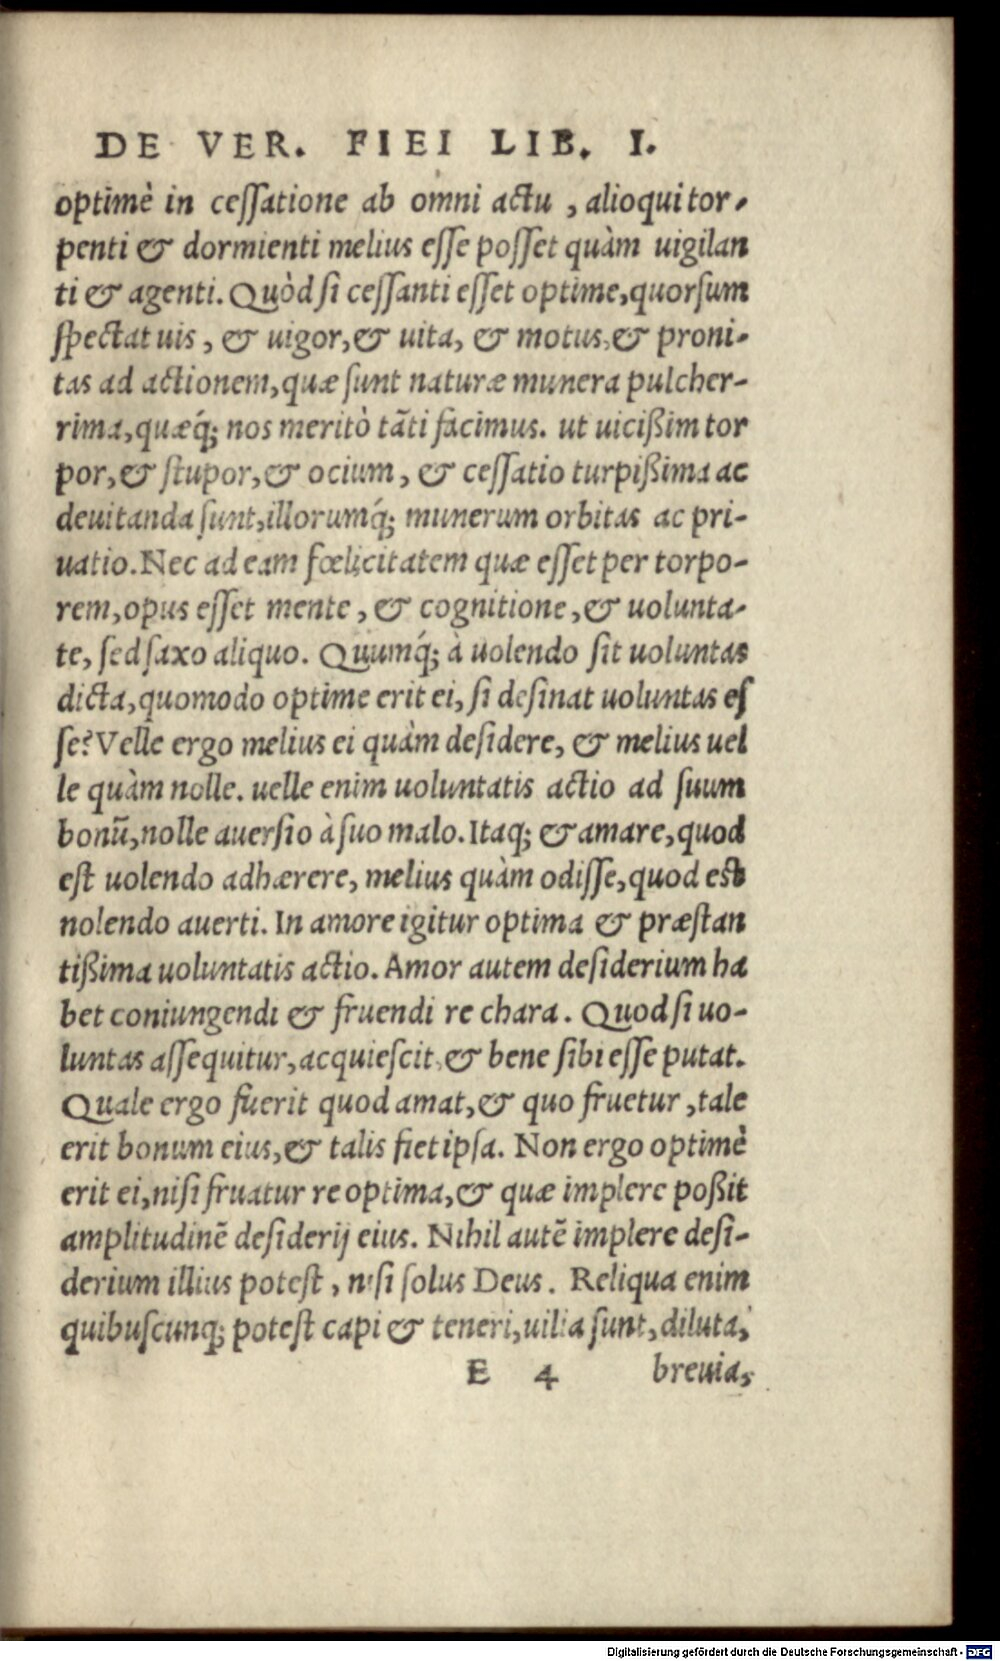 DE VER. FIEI LIB. I.
optimè in ceſſatione ab omni actu, alioqui tor-
penti & dormienti melius eſſe poſſet quàm uigilan
ti & agenti. Quòd ſi ceſſanti eſſet optime, quorſum
ſpectat uis, & uigor, & uita, & motus, & proni-
tas ad actionem, quæ ſunt naturæ munera pulcher-
rima, quæq́; nos meritò tãti facimus. ut uicißim tor
por, & ſtupor, & ocium, & ceſſatio turpißima ac
deuitanda ſunt, illorumq́; munerum orbitas ac pri-
uatio. Nec ad eam fœlicitatem quæ eſſet per torpo-
rem, opus eſſet mente, & cognitione, & uolunta-
te, ſed ſaxo aliquo. Quumq́; à uolendo ſit uoluntas
dicta, quomodo optime erit ei, ſi deſinat uoluntas eſ
ſe? Velle ergo melius ei quàm deſidere, & melius uel
le quàm nolle. uelle enim uoluntatis actio ad ſuum
bonũ, nolle auerſio à ſuo malo. Itaq; & amare, quod
eſt uolendo adhærere, melius quàm odiſſe, quod est
nolendo auerti. In amore igitur optima & præſtan
tißima uoluntatis actio. Amor autem deſiderium ha
bet coniungendi & fruendi re chara. Quod ſi uo-
luntas aſſequitur, acquieſcit, & bene ſibi eſſe putat.
Quale ergo fuerit quod amat, & quo fruetur, tale
erit bonum eius, & talis fiet ipſa. Non ergo optimè
erit ei, niſi fruatur re optima, & quæ implere poßit
amplitudinẽ deſiderij eius. Nihil autẽ implere deſi-
derium illius poteſt, niſi ſolus Deus. Reliqua enim
quibuſcunq; poteſt capi & teneri, uilia ſunt, diluta,
E 4 breuia,
Digitalisierung gefördert durch die Deutsche Forschungsgemeinschaft - DFG